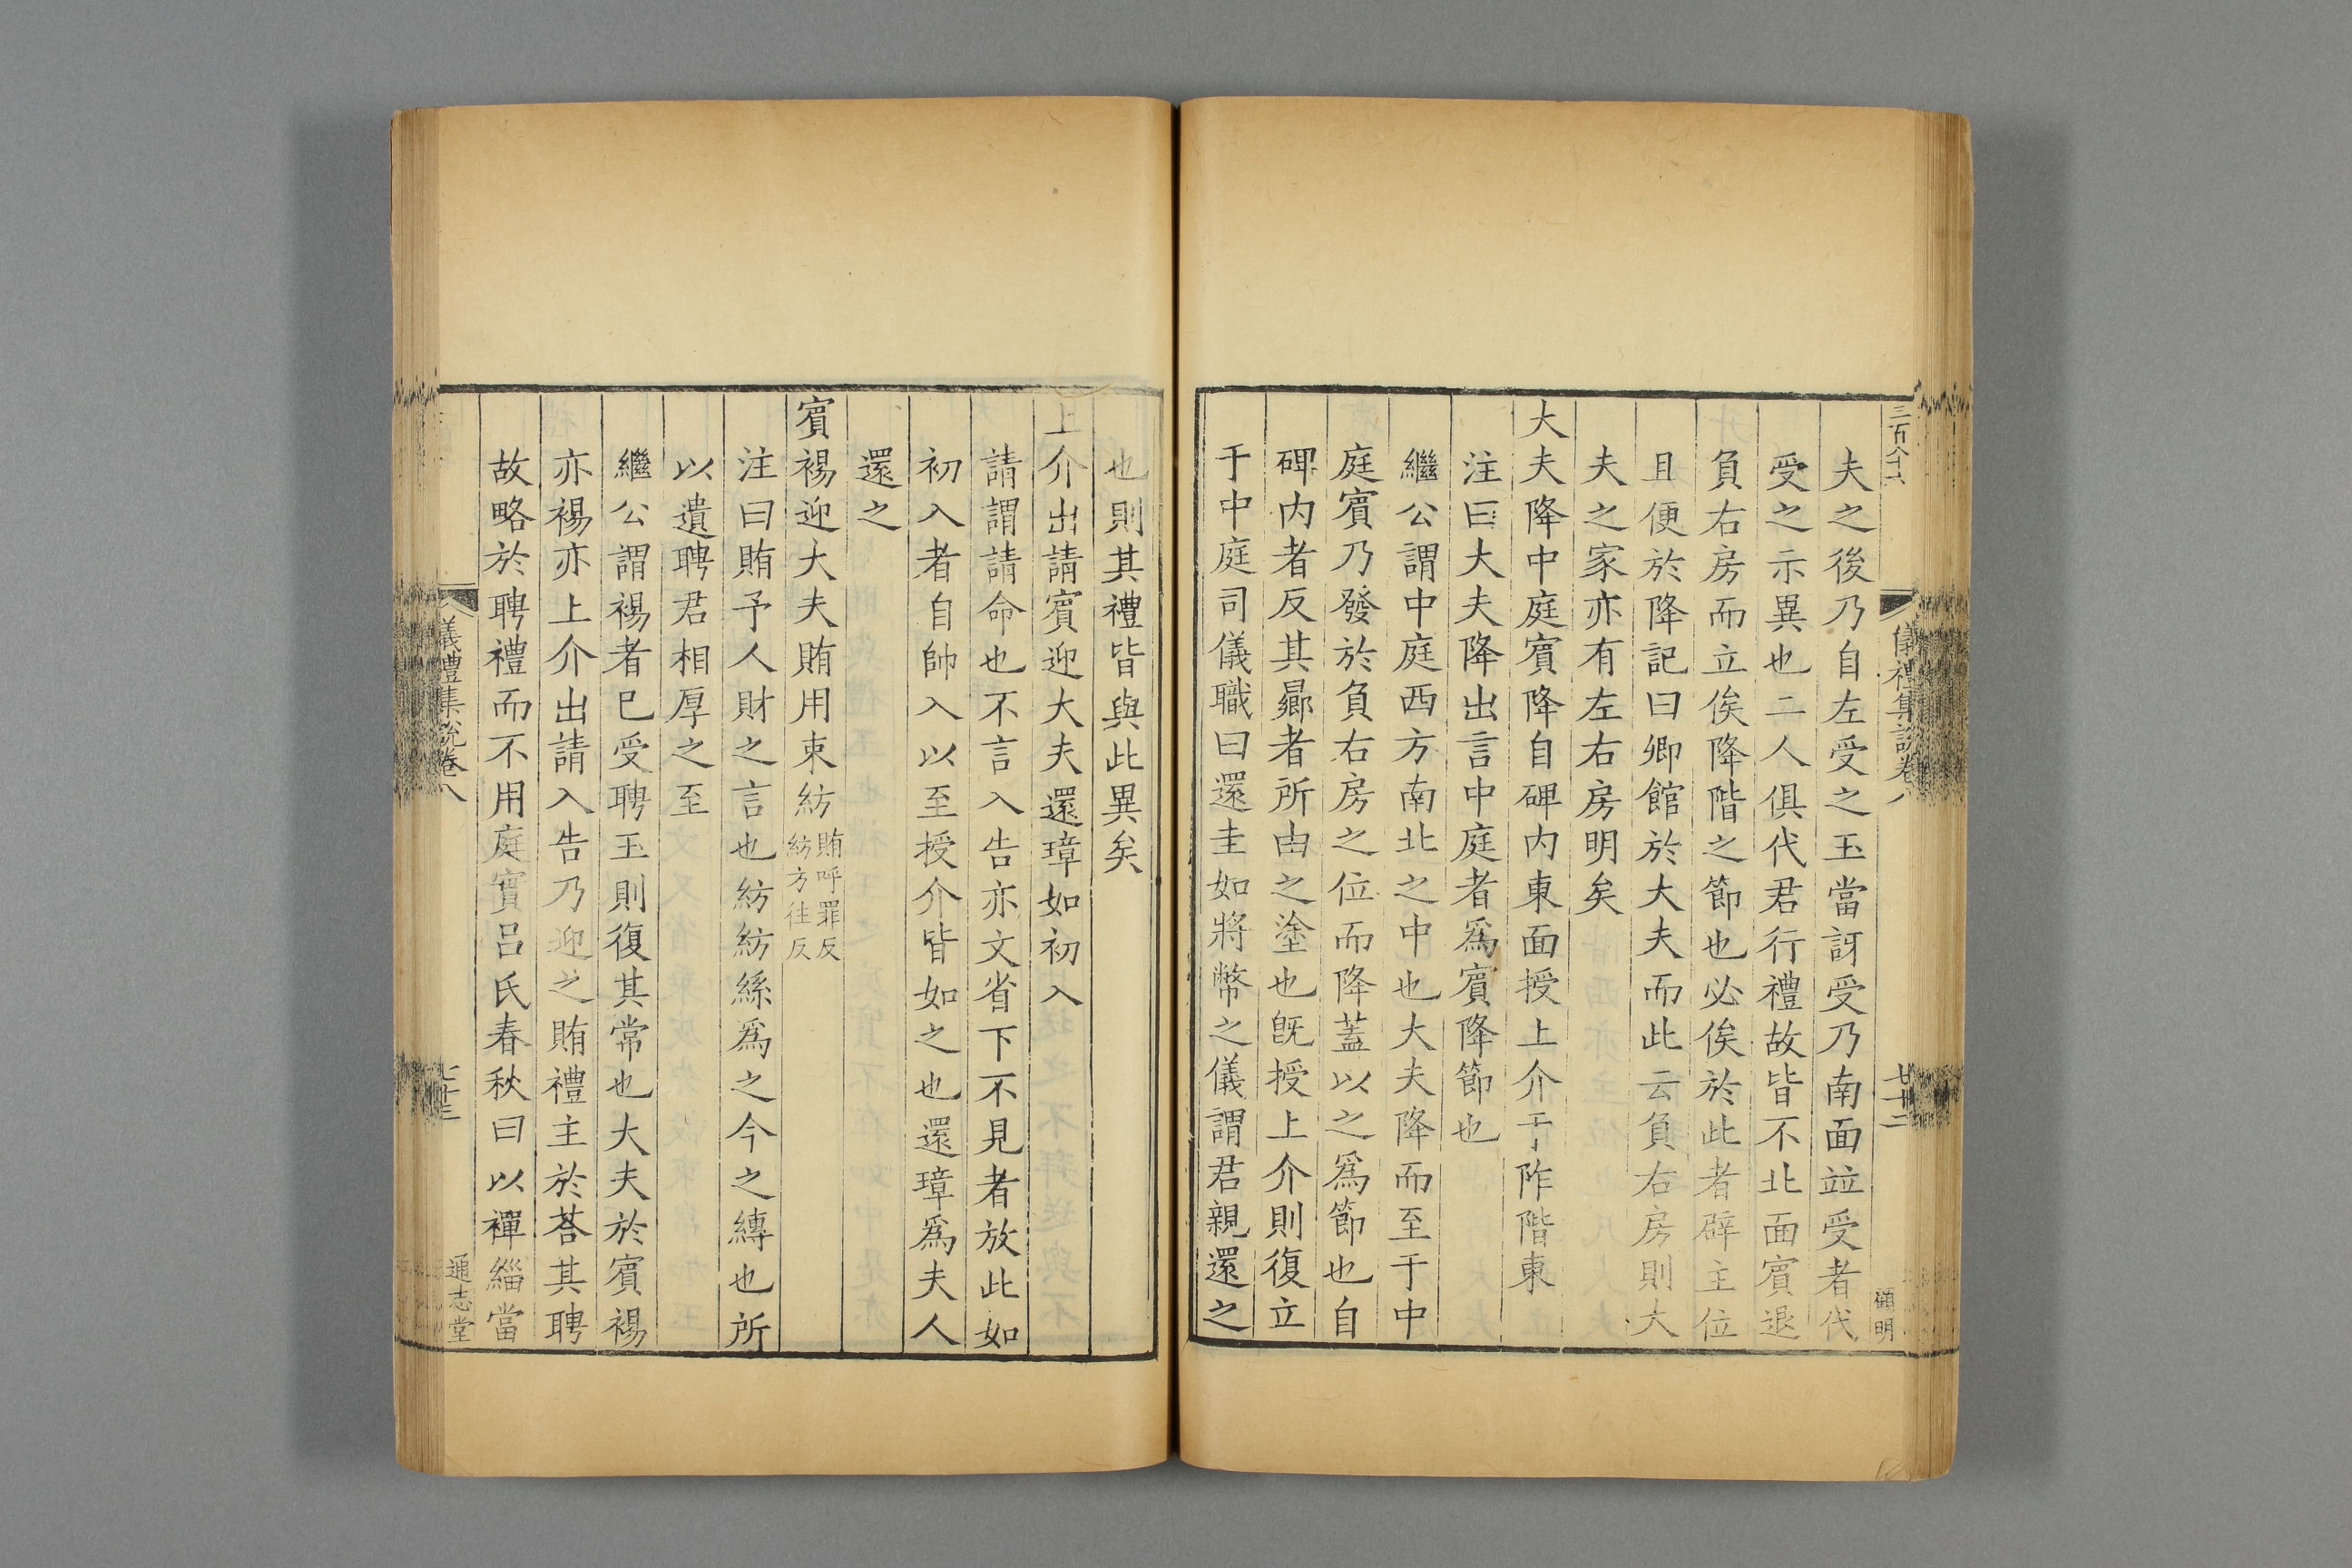 儀禮集說卷八
夫之後乃自左受之玉當訝受乃南面竝受者代
受之示異也二人俱代君行禮故皆不北面賓退
負右房而立俟降階之節也必俟於此者辟主位
且便於降記曰卿館於大夫而此云負右房則大
夫之家亦有左右房明矣
大夫降中庭賓降自碑内東面授上介于阼階東
注曰大夫降出言中庭者爲賓降節也
繼公謂中庭西方南北之中也大夫降而至于中
庭賓乃發於負右房之位而降蓋以之爲節也自
碑内者反其曏者所由之塗也旣授上介則復立
于中庭司儀職曰還圭如將幣之儀謂君親還之
也則其禮皆與此異矣
上介出請賓迎大夫還璋如初入
請謂請命也不言入告亦文省下不見者放此如
初入者自帥入以至授介皆如之也還璋爲夫人
還之
賓裼迎大夫賄用束紡賄呼罪反紡方往反
注曰賄予人財之言也紡紡絲爲之今之縳也所
以遺聘君相厚之至
繼公謂裼者已受聘玉則復其常也大夫於賓裼
亦裼亦上介出請入告乃迎之賄禮主於荅其聘
故略於聘禮而不用庭實呂氏春秋曰以襌緇當
儀禮集說卷八
通志堂